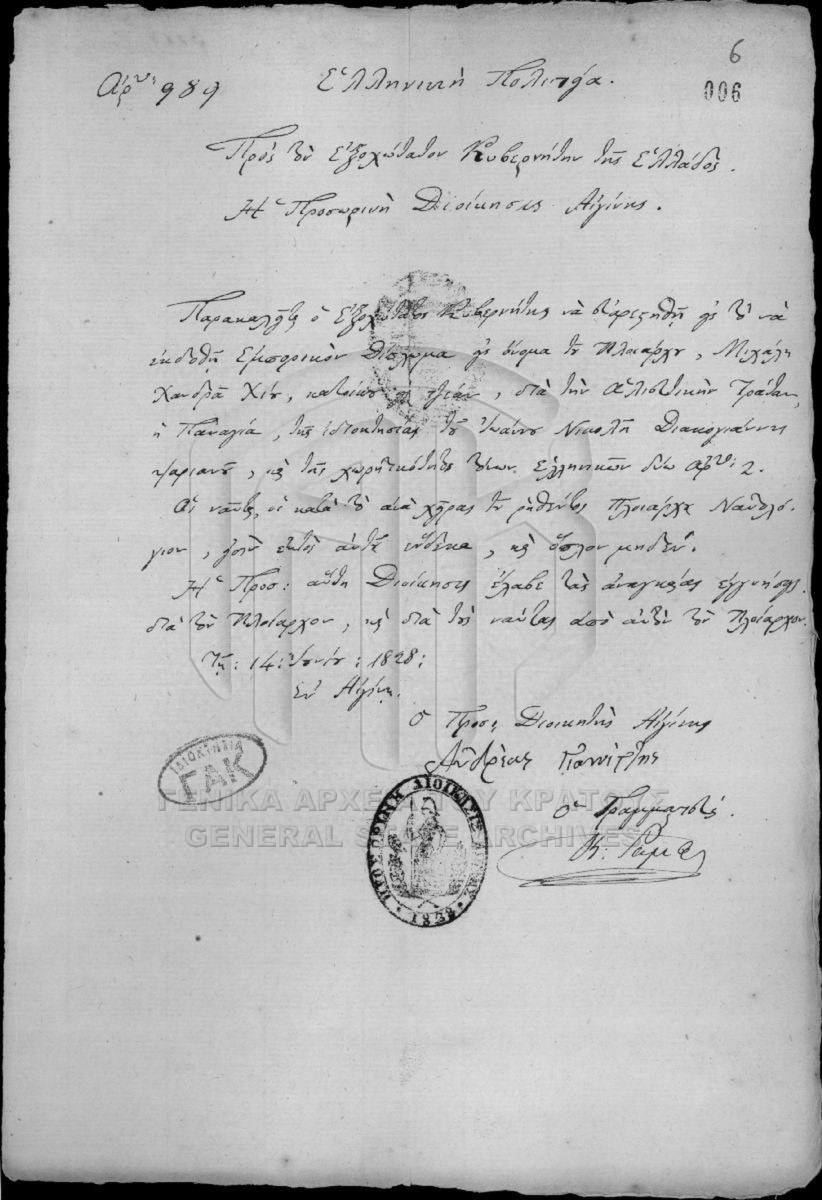 6
Ἀρ: 989 Ἑλληνικὴ Πολιτεία.
006
Πρὸς τὸν Ἐξοχώτατον Κυβερνήτην τῆς Ἑλλάδος.
Ἡ Προσωρινὴ Διοίκησις Αἰγίνης.
Παρακαλεῖται ὁ Ἐξοχώτατος Κυβερνήτης νὰ εὐαρεστηθῇ εἰς τὸ νὰ
ἐκδοθῇ Ἐμπορικὸν Δίπλωμα εἰς ὄνομα τοῦ Πλοιάρχου, Μιχάλη
Χανδρᾶ Χίου, κατοίκου, διὰ τὴν Ἁλιευτικὴν Τράταν,
ἡ Παναγία, τῆς ἰδιοκτησίας τοῦ Ἰωάννου Νικολῆ Διακογιάννη
ψαριανοῦ, καὶ τῆς χωρητικότητος τόνων Ἑλληνικῶν δύω ἀρ: 2.
Οἱ ναῦται, οἱ κατὰ τὸ ἀνὰ χεῖρας τοῦ ῥηθέντος Πλοιάρχου Ναυτολό-
γιον, εἰσὶν ἐκτὸς αὐτοῦ ἕνδεκα, καὶ ὅπλον μηδέν.
Ἡ Προσ: αὕτη Διοίκησις ἔλαβε τὰς ἀναγκαίας ἐγγυήσεις
διὰ τὸν Πλοίαρχον, καὶ διὰ τοὺς ναύτας ἀπὸ αὐτὸν τὸν Πλοίαρχον.
Τῇ: 14: Ἰουνίου: 1828:
Ἐν Αἰγίνῃ.
Ὁ Προσ: Διοικητὴς Αἰγίνης
Ἀνδρέας
Ὁ Γραμματεὺς.
Κ: Ῥάμφος
ΙΔΙΟΚΤΗΣΙΑ
ΓΑΚ
ΓΕΝΙΚΑ ΑΡΧΕΙΑ ΤΟΥ ΚΡΑΤΟΥΣ
GENERAL STATE ARCHIVES
ΠΡΟΣΩΡΙΝΗ ΔΙΟΙΚΗΣΙΣ ΑΙΓΙΝΗΣ
1828